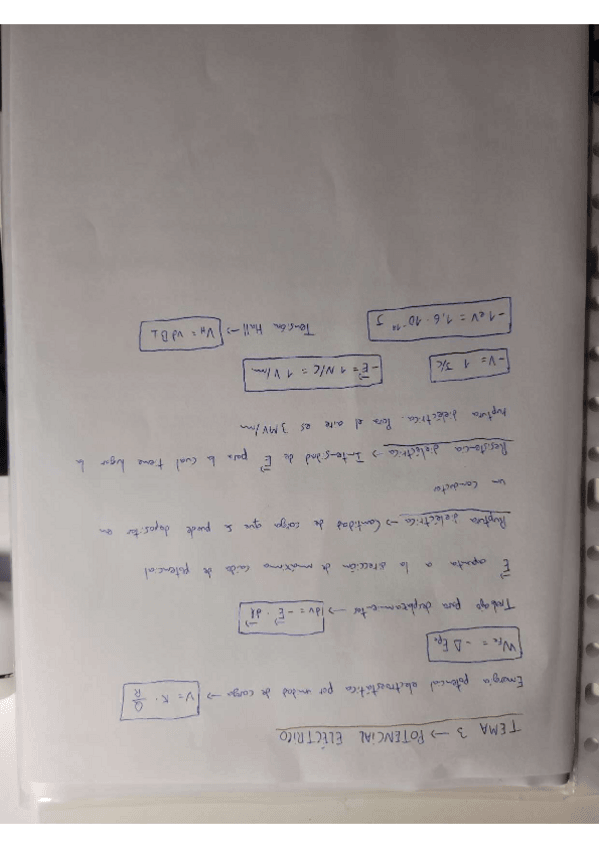 TEMA 3 → POTENCIAL ELÉCTRICO
Energía potencial electrostática por unidad de carga → V = K · Q/R
W_Fe = - Δ Ep
Trabajo para desplazamientos → dv = - E⃗ · dl⃗
E⃗ apunta a la dirección de máxima caída de potencial
Ruptura dieléctrica → Cantidad de carga que se puede depositar en
un conductor
Resistencia dieléctrica → Intensidad de E⃗ para la cual tiene lugar la
ruptura dieléctrica. Para el aire es 3 MV/m
- V = 1 J/C - E⃗ = 1 N/C = 1 V/m
- 1 eV = 1,6 · 10⁻¹⁹ J Tensión Hall → V_H = vd B L